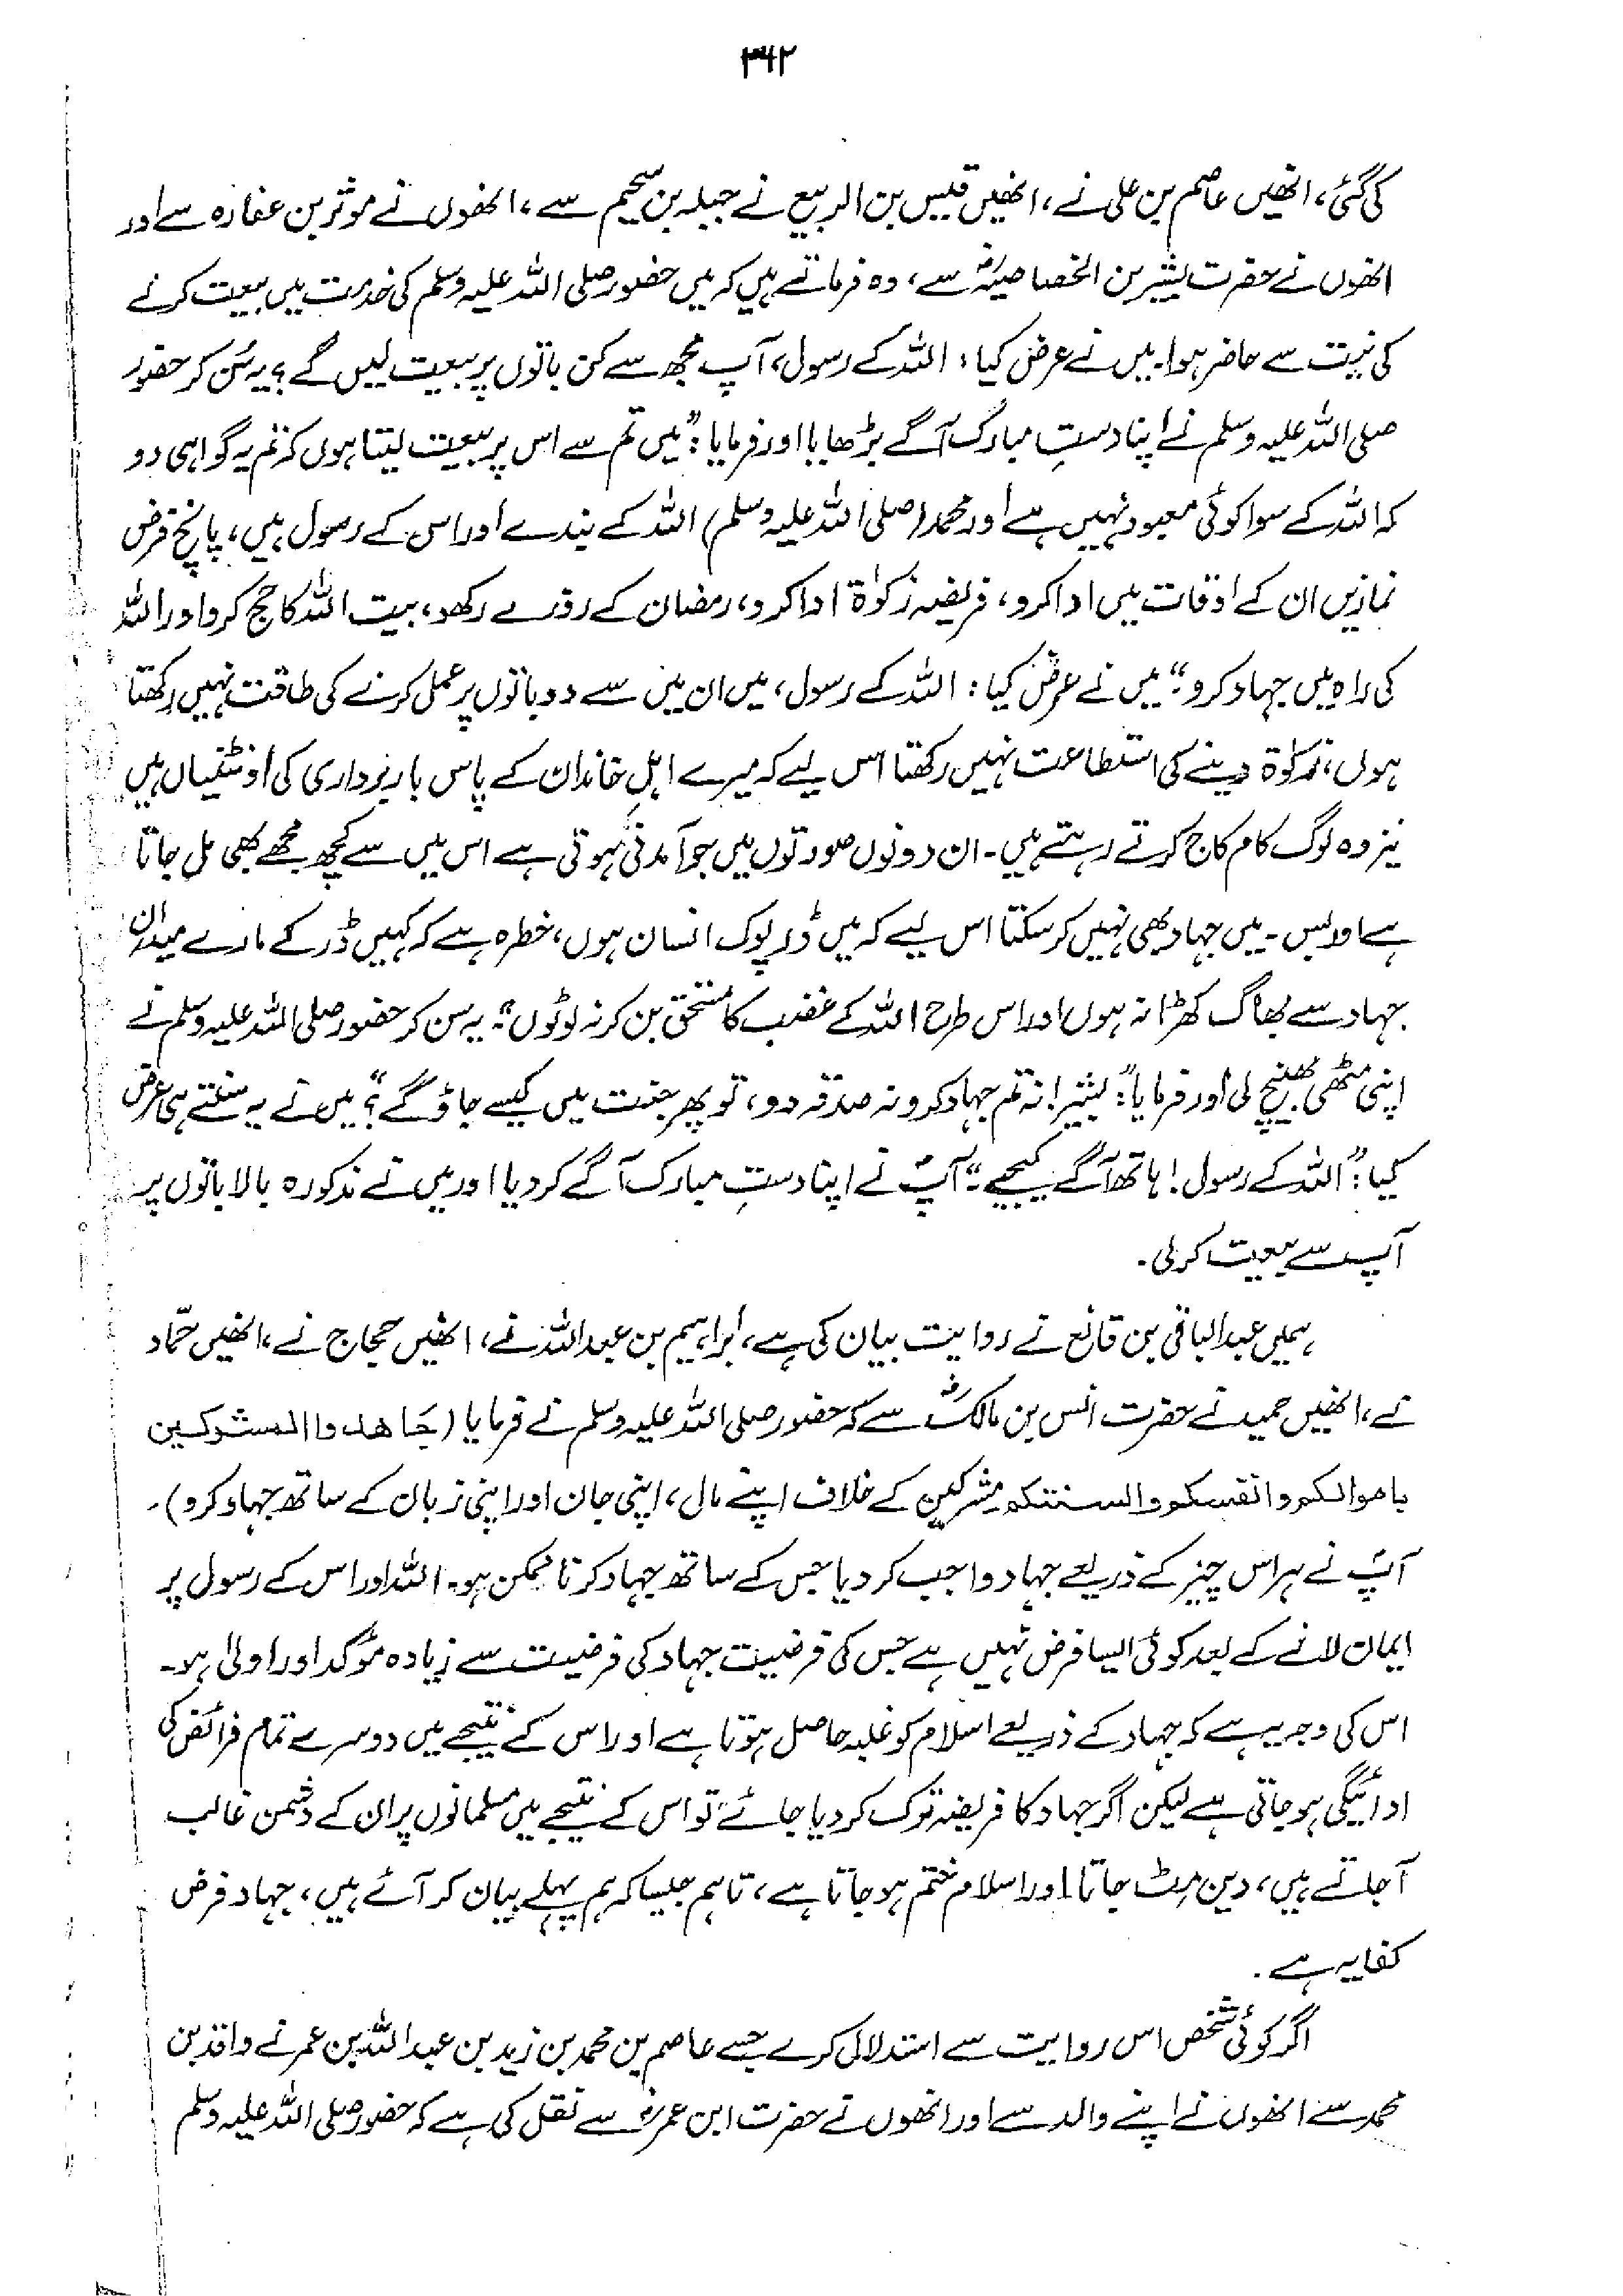 ۳۶۲
کی گئی، انھیں عاصم بن علی نے، انھیں قیس بن الربیع نے جبلہ بن سحیم سے، انھوں نے موثر بن عفارہ سے اور
انھوں نے حضرت بشیر بن الخصاصیہؓ سے، وہ فرماتے ہیں کہ میں حضور صلی اللہ علیہ وسلم کی خدمت میں بیعت کرنے
کی نیت سے حاضر ہوا۔ میں نے عرض کیا: اللہ کے رسول، آپ مجھ سے کن باتوں پر بیعت لیں گے؟ یہ سُن کر حضور
صلی اللہ علیہ وسلم نے اپنا دستِ مبارک آگے بڑھایا اور فرمایا: "میں تم سے اس پر بیعت لیتا ہوں کہ تم یہ گواہی دو
کہ اللہ کے سوا کوئی معبود نہیں ہے اور محمد (صلی اللہ علیہ وسلم) اللہ کے بندے اور اس کے رسول ہیں، پانچ فرض
نمازیں ان کے اوقات میں ادا کرو، فریضہ زکوٰۃ ادا کرو، رمضان کے روزے رکھو، بیت اللہ کا حج کرو اور اللہ
کی راہ میں جہاد کرو"۔ میں نے عرض کیا: اللہ کے رسول، میں ان میں سے دو باتوں پر عمل کرنے کی طاقت نہیں رکھتا
ہوں، زکوٰۃ دینے کی استطاعت نہیں رکھتا اس لیے کہ میرے اہلِ خاندان کے پاس باربرداری کی اونٹنیاں ہیں
نیز وہ لوگ کام کاج کرتے رہتے ہیں۔ ان دونوں صورتوں میں جو آمدنی ہوتی ہے اس میں سے کچھ مجھے بھی مل جاتا
ہے اور بس۔ میں جہاد بھی نہیں کر سکتا اس لیے کہ میں ڈرپوک انسان ہوں، خطرہ ہے کہ کہیں ڈر کے مارے میدان
جہاد سے بھاگ کھڑا نہ ہوں اور اس طرح اللہ کے غضب کا مستحق بن کر نہ لوٹوں"۔ یہ سن کر حضور صلی اللہ علیہ وسلم نے
اپنی مٹھی بھینچ لی اور فرمایا: "بشیر! نہ تم جہاد کرو نہ صدقہ دو، تو پھر جنت میں کیسے جاؤ گے؟" میں نے یہ سنتے ہی عرض
کیا: "اللہ کے رسول! ہاتھ آگے کیجیے"۔ آپؐ نے اپنا دستِ مبارک آگے کر دیا اور میں نے مذکورہ بالا باتوں پر
آپ سے بیعت کر لی۔
ہمیں عبدالباقی بن قانع نے روایت بیان کی ہے، ابراہیم بن عبداللہ نے، انھیں حجاج نے، انھیں حمّاد
نے، انھیں حمید نے حضرت انس بن مالکؓ سے کہ حضور صلی اللہ علیہ وسلم نے فرمایا (جَاهدوا المشرکین
باموالکم وانفسکم والسنتکم مشرکین کے خلاف اپنے مال، اپنی جان اور اپنی زبان کے ساتھ جہاد کرو)۔
آپؐ نے ہر اس چیز کے ذریعے جہاد واجب کر دیا جس کے ساتھ جہاد کرنا ممکن ہو۔ اللہ اور اس کے رسول پر
ایمان لانے کے بعد کوئی ایسا فرض نہیں ہے جس کی فرضیت جہاد کی فرضیت سے زیادہ مؤکد اور اولیٰ ہو۔
اس کی وجہ یہ ہے کہ جہاد کے ذریعے اسلام کو غلبہ حاصل ہوتا ہے اور اس کے نتیجے میں دوسرے تمام فرائض کی
ادائیگی ہو جاتی ہے لیکن اگر جہاد کا فریضہ ترک کر دیا جائے تو اس کے نتیجے میں مسلمانوں پر ان کے دشمن غالب
آجاتے ہیں، دین مِٹ جاتا اور اسلام ختم ہو جاتا ہے، تاہم جیسا کہ ہم پہلے بیان کر آئے ہیں، جہاد فرض
کفایہ ہے۔
اگر کوئی شخص اس روایت سے استدلال کرے جسے عاصم بن محمد بن زید بن عبداللہ بن عمر نے واقد بن
محمد سے انھوں نے اپنے والد سے اور انھوں نے حضرت ابن عمرؓ سے نقل کی ہے کہ حضور صلی اللہ علیہ وسلم